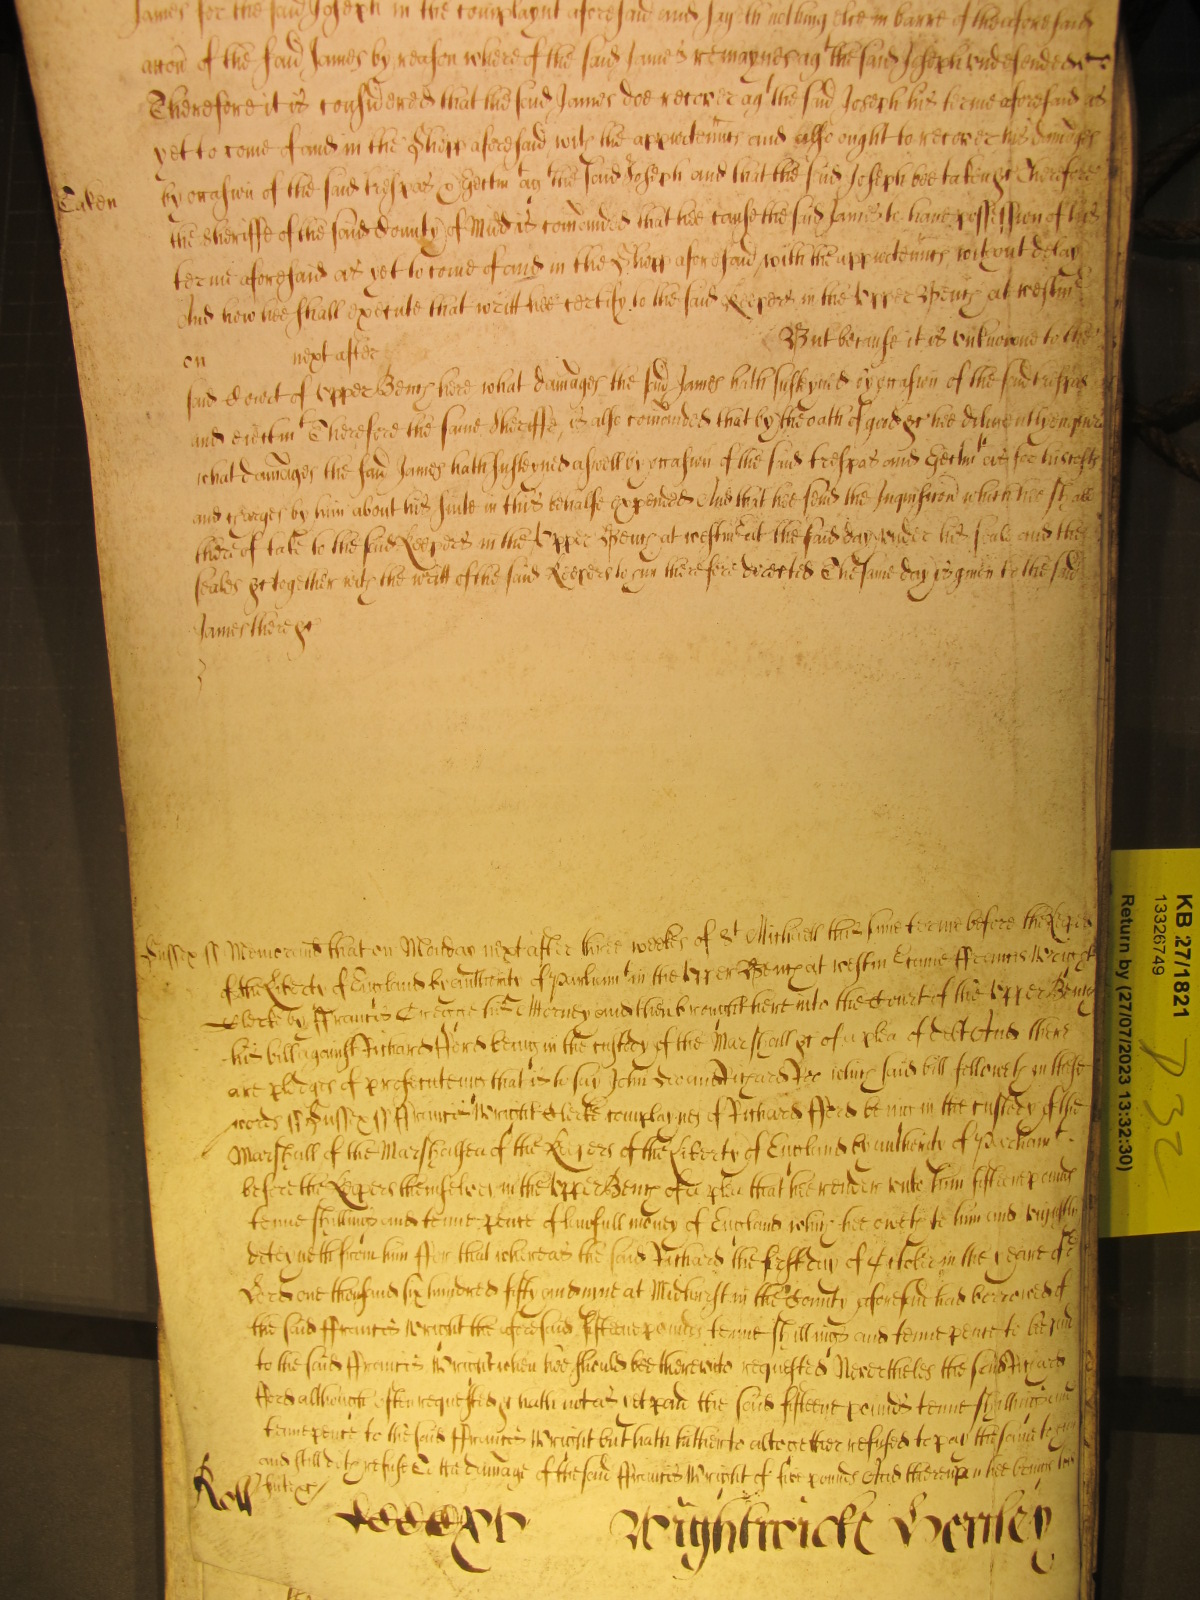 James for the said Joseph in the complaynt aforesaid and sayth nothing else in barre of the aforesaid
accon of the said James by reason whereof the said James remaynes ag.t the said Joseph undefended &c
Therefore it is considered that the said James doe recover ag.t the said Joseph his terme aforesaid as
yet to come of and in the Shopp aforesaid with the appurtenncs and also ought to recover his damages
Taken
by occasion of the said trespas & Eiectm.t ag.t the said Joseph and that the said Joseph bee taken &c Therefore
the Sheriffe of the said County of Midd is comanded that hee cause the said James to have possession of his
terme aforesaid as yet to come of and in the Shopp aforesaid with the appurtenncs without delay
And how hee shall execute that writt hee certify to the said Keepers in the Upper Bench at Westm.r
on next after But because it is unknowne to the
said Court of Upper Bench here what damages the said James hath susteyned by occasion of the said trespas
and eiectm.t Therefore the same Sheriffe is also comanded that by the oath of good &c hee diligently enquire
what damages the said James hath susteyned aswell by occasion of the said trespas and Eiectm.t as for his costs
and charges by him about his suite in this behalfe expended And that hee send the Inquisicon which hee shall
thereof take to the said Keepers in the Upper Bench at Westm.r at the said day under his seale and the
seales &c together with the writt of the said Keepers to him therefore directed The same day is given to the said
James there &c
Sussex ss Memorand that on Monday next after three weekes of S.t Michaell this same terme before the Keepers
of the Liberty of England by authority of Parliam.t in the Upper Bench at Westm.r came Ffrancis Wright
Clerke by Ffrancis his Attorney and then brought here into the Court of the Upper Bench
his bill against Richard Fford being in the custody of the Marshall &c of a plea of debt And there
are pledges of prosecuteing that is to say John Doe and Richard Roe which said bill followeth in these
words ss Sussex ss Ffrancis Wright Clerke complaynes of Richard Fford being in the custody of the
Marshall of the Marshalsea of the Keepers of the Liberty of England by authority of Parliam.t
before the Keepers themselves in the Upper Bench of a plea that hee render unto him fifteene pounds
tenne shillings and tenne pence of lawfull money of England which hee oweth to him and uniustly
deteyneth from him Ffor that whereas the said Richard the first day of October in the yeare of o.r
Lord one thousand six hundred fifty and nine at Midhurst in the County aforesaid had borrowed of
the said Ffrancis Wright the aforesaid fifteene pounds tenne shillings and tenne pence to be paid
to the said Ffrancis Wright when hee should bee thereunto requested Neverthelesse the said Richard
Fford although often requested &c hath not as yet paid the said fifteene pounds tenne shillings and
tenne pence to the said Ffrancis Wright but hath hitherto altogether refused to pay the same to him
and still doth refuse To the damage of the said Ffrancis Wright of five pounds And thereupon hee bringeth his
suite &c
Roll Wightwicke Henley
KB 27/1821
13326749
Return by (27/07/2023 13:32:30)